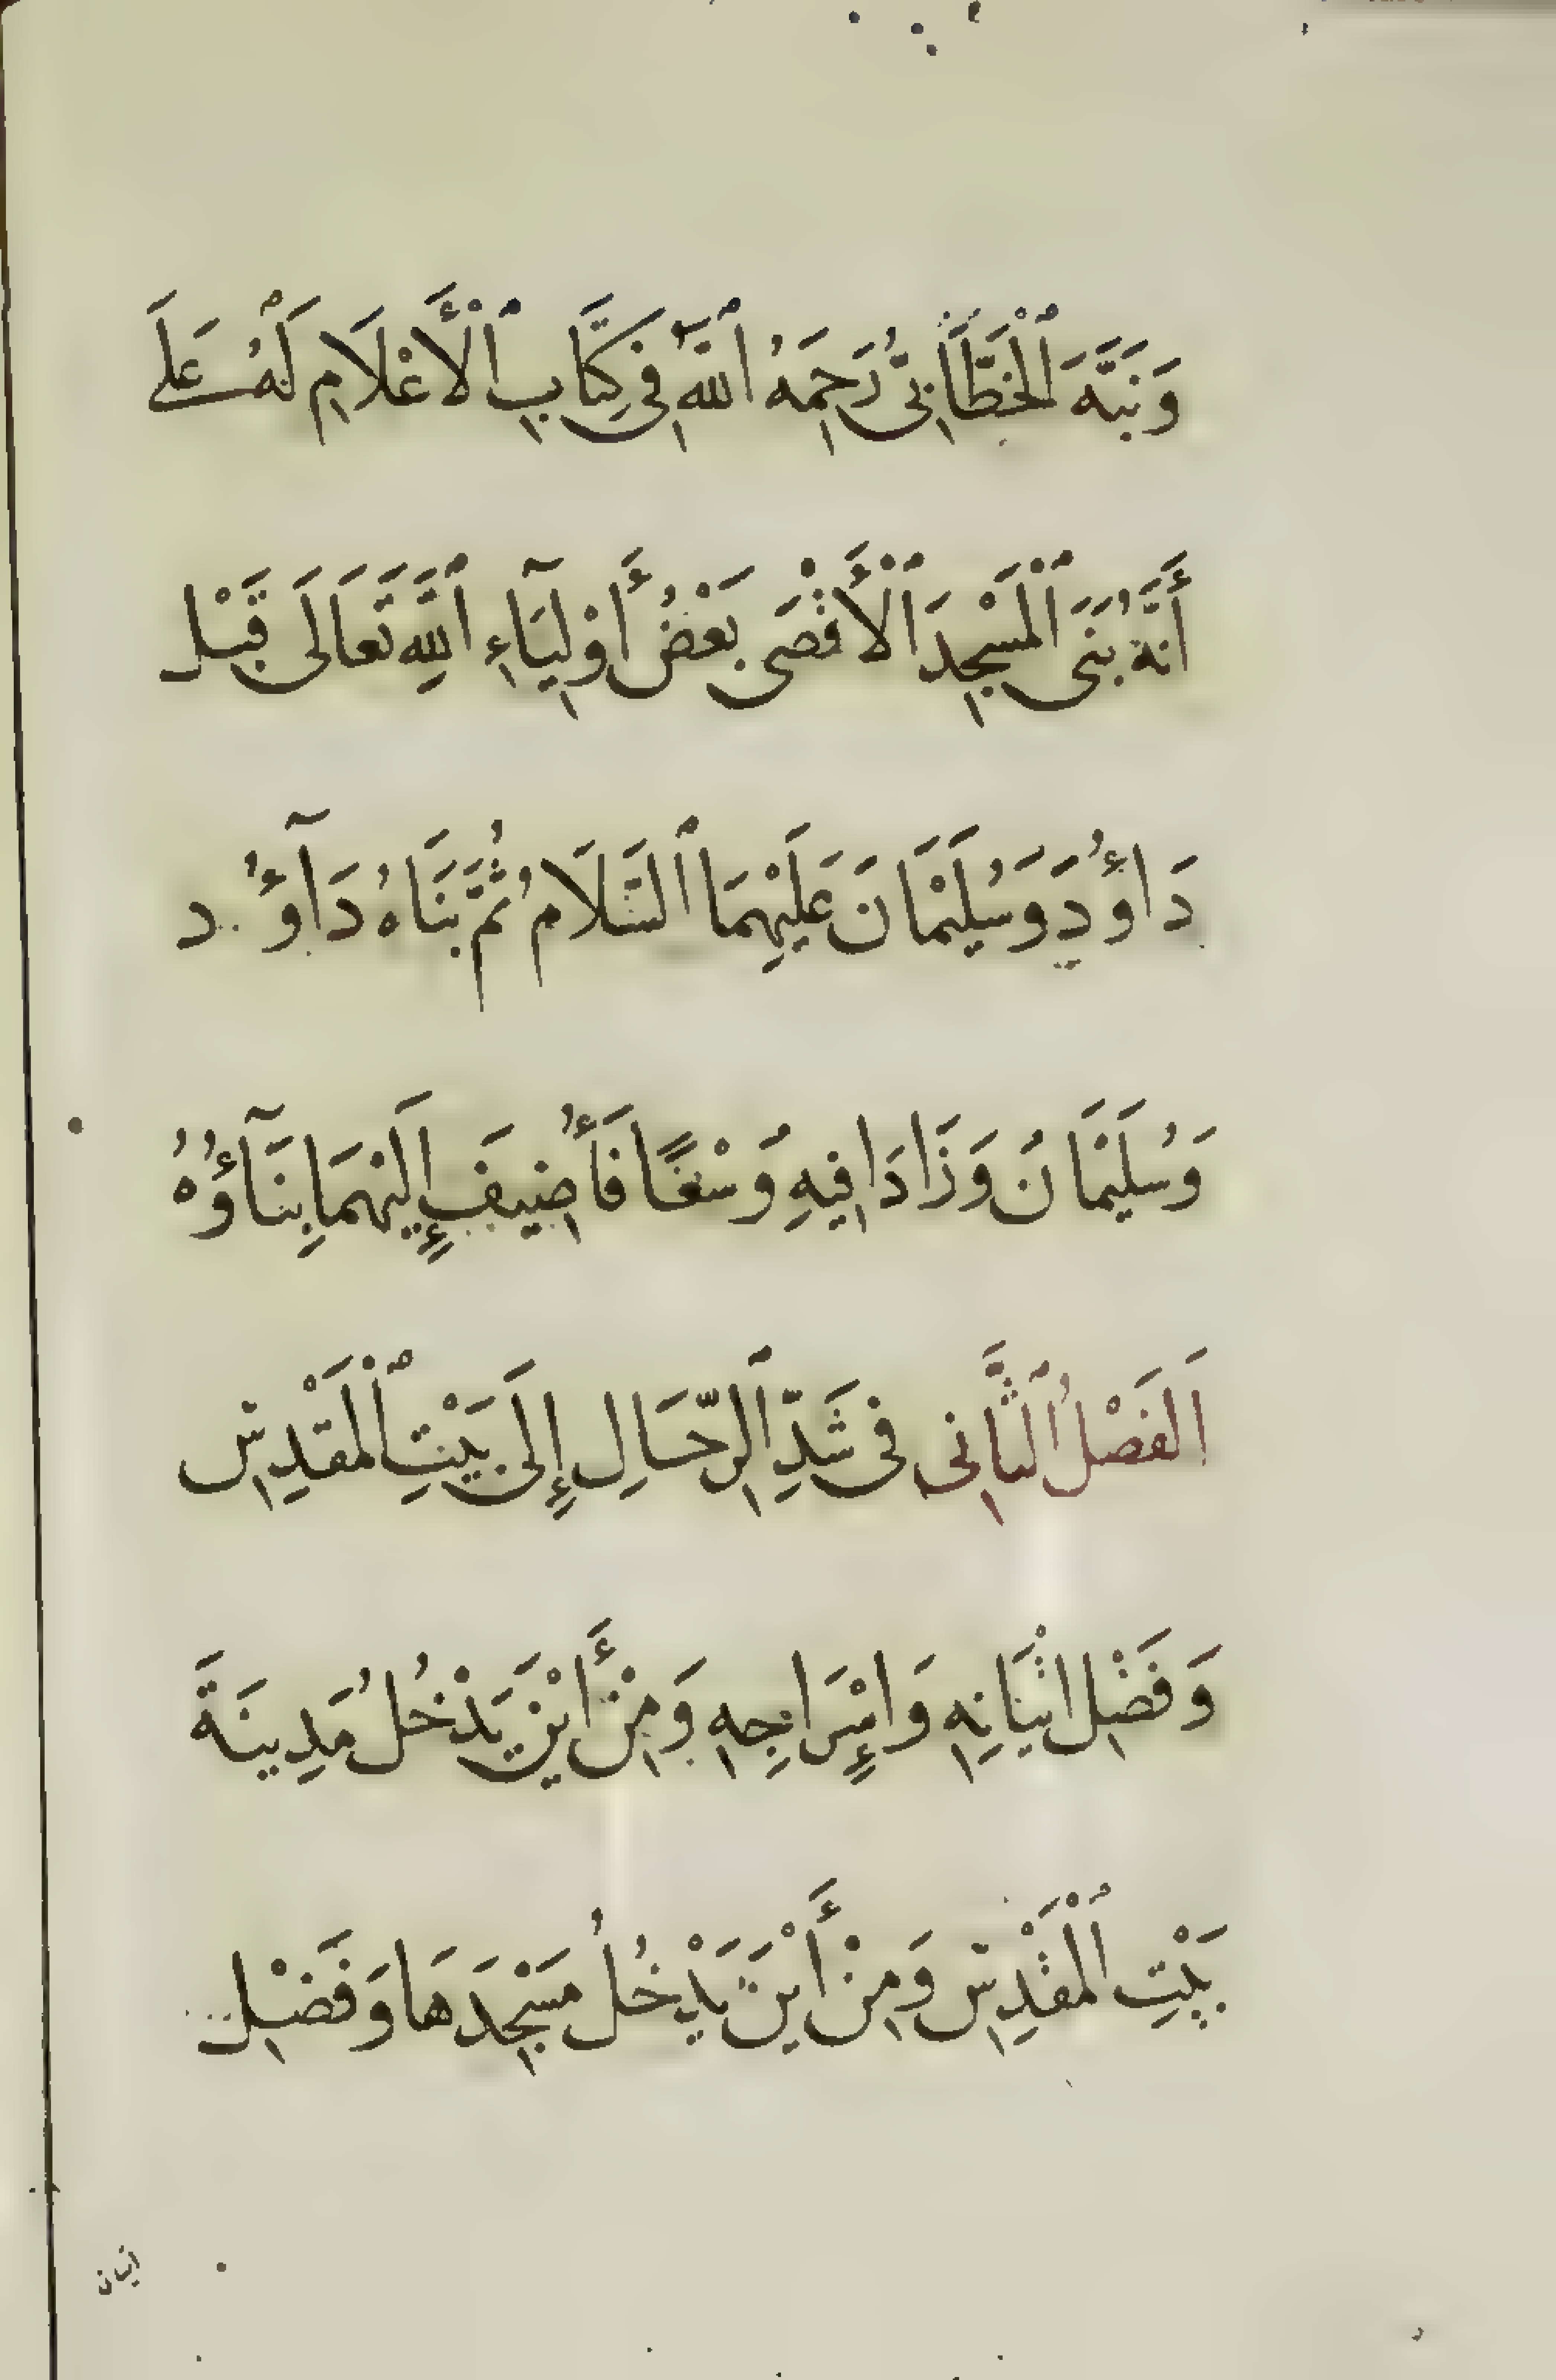 وَنَبَّهَ ٱلْخَطَّابِىُّ رَحِمَهُ ٱللَّهُ فِى كِتَابِ ٱلْأَعْلَامِ لَهُ عَلَى
أَنَّهُ بَنَى ٱلْمَسْجِدَ ٱلْأَقْصَى بَعْضُ أَوْلِيَآءِ ٱللَّهِ تَعَالَى قَبْل
دَاؤُدَ وَسُلَيْمَانَ عَلَيْهِمَا ٱلسَّلَامُ ثُمَّ بَنَاهُ دَآؤُد
وَسُلَيْمَانُ وَزَادَا فِيهِ وُسْعًا فَأُضِيفَ إِلَيْهِمَا بِنَآؤُهُ
اَلفَصْلُ ٱلثَّانِى فِى شَدِّ ٱلرِّحَالِ إِلَى بَيْتِ ٱلْمَقْدِسِ
وَفَضْلِ اتْيَانِهِ وَاسْرَاجِهِ وَمِنْ أَيْنَ يَدْخُلُ مَدِينَةَ
بَيْتِ ٱلْمَقْدِسِ وَمِنْ أَيْنَ يَدْخُلُ مَسْجِدَهَا وَفَضْلِ
اتيان